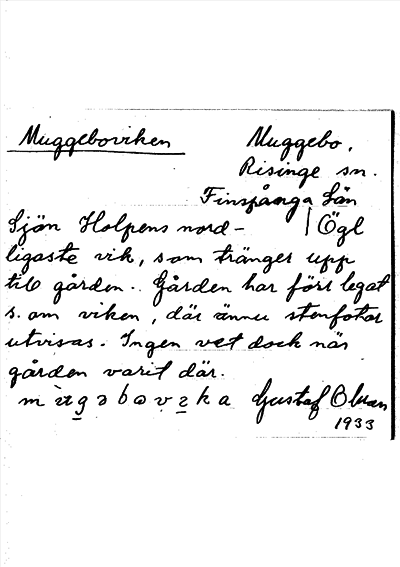 Muggeboviken
Muggebo,
Risinge sn.
Finspånga Län
Ögl
Sjön Holpens nord-
ligaste vik, som tränger upp
till gården. Gården har förr legat
s. om viken, där ännu stenfotar
utvisas. Ingen vet dock när
gården varit där.
Gustaf
1933